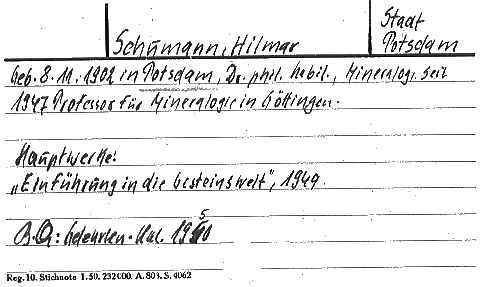 Schumann, Hilmar
Stadt
Potsdam
Geb. 8.11.1902 in Potsdam, Dr. phil. habil., Mineraloge. Seit
1947 Professor für Mineralogie in Göttingen.
Hauptwerke:
„Einführung in die Gesteinswelt", 1949.
Gelehrten-Kal. 1950
Reg. 10. Stichnote 1. 50. 232000. A. 803. S. 4062